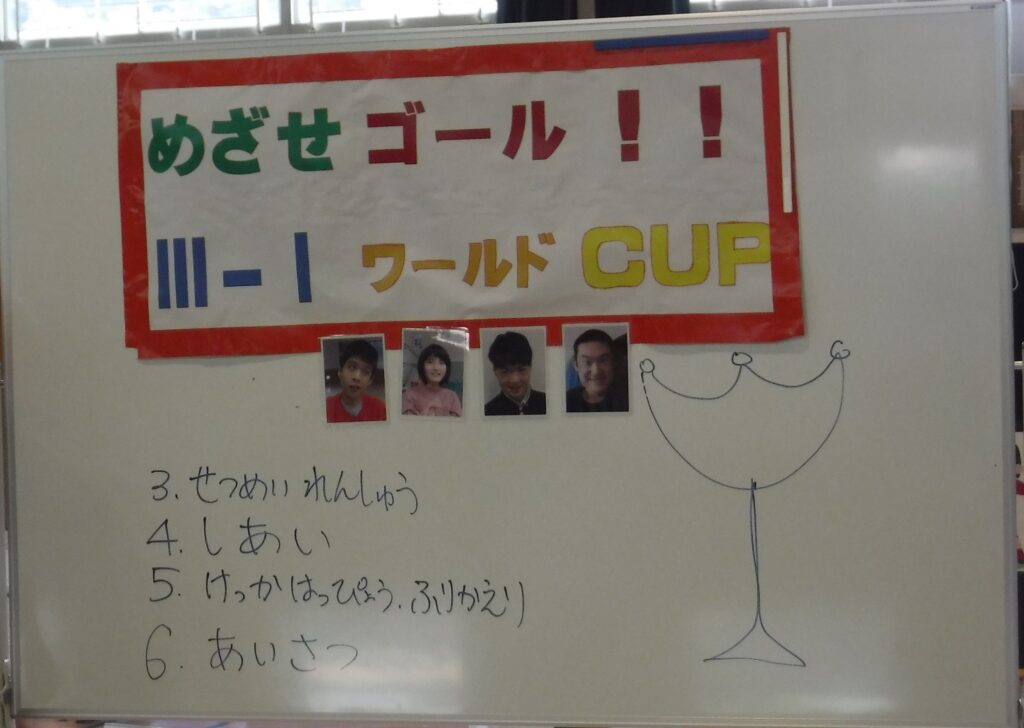 めざせ ゴール！！
III-I ワールド CUP
3. せつめい れんしゅう
4. しあい
5. けっかはっぴょう. ふりかえり
6. あいさつ